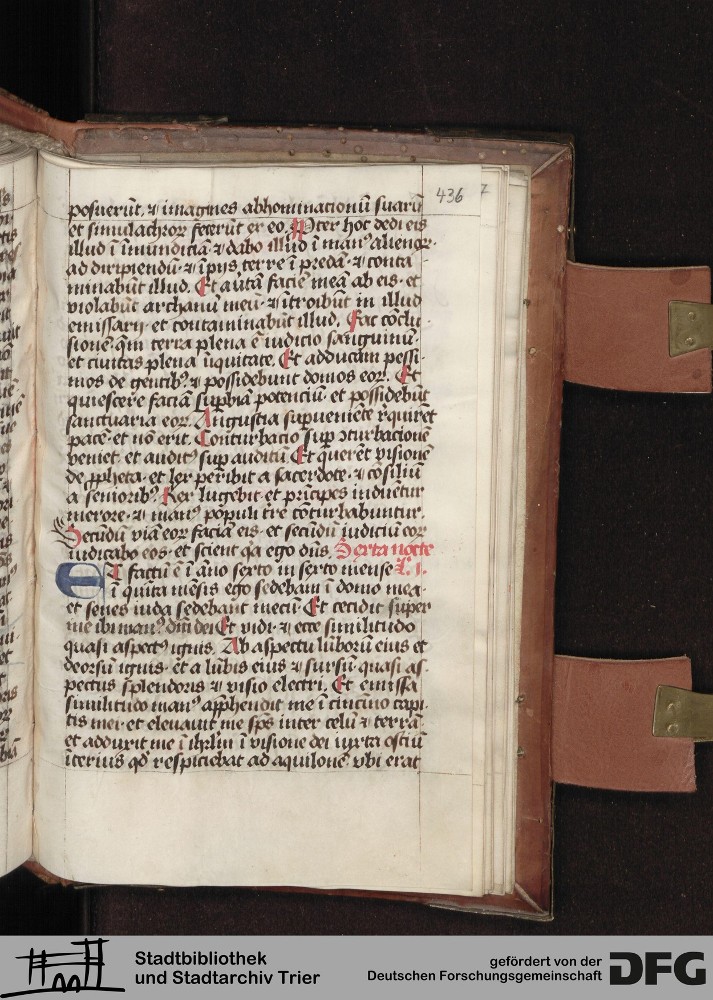 436
posuerūt. ⁊ imagines abhominationū suarū
et simulachroꝝ fecerūt ex eo. Ꝓpter hoc dedi eis
illud ī īmundiciā. ⁊ dabo illud ī manꝰ alienoꝝ.
ad diripiendū. ⁊ īpijs terre ī predā. ⁊ conta
minabūt illud. Et autā faciē meā ab eis. et
violabūt archanū meū. ⁊ ītroibūt in illud
emissarij. et contaminabūt illud. Fac cōclu
sionē. qm̄ terra plena ē iudicio sanguinū.
et ciuitas plena īiquitate. Et adducam pessi
mos de gentibꝰ. ⁊ possidebunt domos eoꝝ. Et
quiescere faciā supbiā potenciū. et possidebūt
sanctuaria eoꝝ. Angustia supueniēte r̄quirēt
pacē. et nō erit. Conturbacio sup ꝯturbacionē
veniet. et auditꝰ sup auditū. Et querēt visionē
de ꝓpheta. et lex peribit a sacerdote. ⁊ cōsiliū
a senioribꝰ. Rex lugebit. et prīcipes induētur
merore. ⁊ manꝰ pōpuli tr̄e cōturbabuntur.
Secūdū viā eoꝝ faciā eis. et secūdū iudiciū eoꝝ
iudicabo eos. et scient qa ego dn̄s. Sexta nocte
ET factū ē ī āno sexto in sexto mense
ī quīta mēsis ego sedebam ī domo mea.
et senes iuda sedebant mecū. Et cecidit super
me ibi manꝰ dn̄i dei Et vidi. ⁊ ecce similitudo
quasi aspectꝰ ignis. Ab aspectu lūboriū eius et
deorsū ignis. et a lūbis eius ⁊ sursū. quasi as
pectus splendoris ⁊ visio electri. Et emissa
similitudo manꝰ app̄hendit me ī cincino capi
tis mei. et eleuauit me sp̄s inter celū ⁊ terrā
et adduxit me ī ihrlm̄ ī visione dei iuxta ostiū
īterius qd̄ respiciebat ad aquilonē. vbi erat
Stadtbibliothek
und Stadtarchiv Trier
gefördert von der
Deutschen Forschungsgemeinschaft
DFG